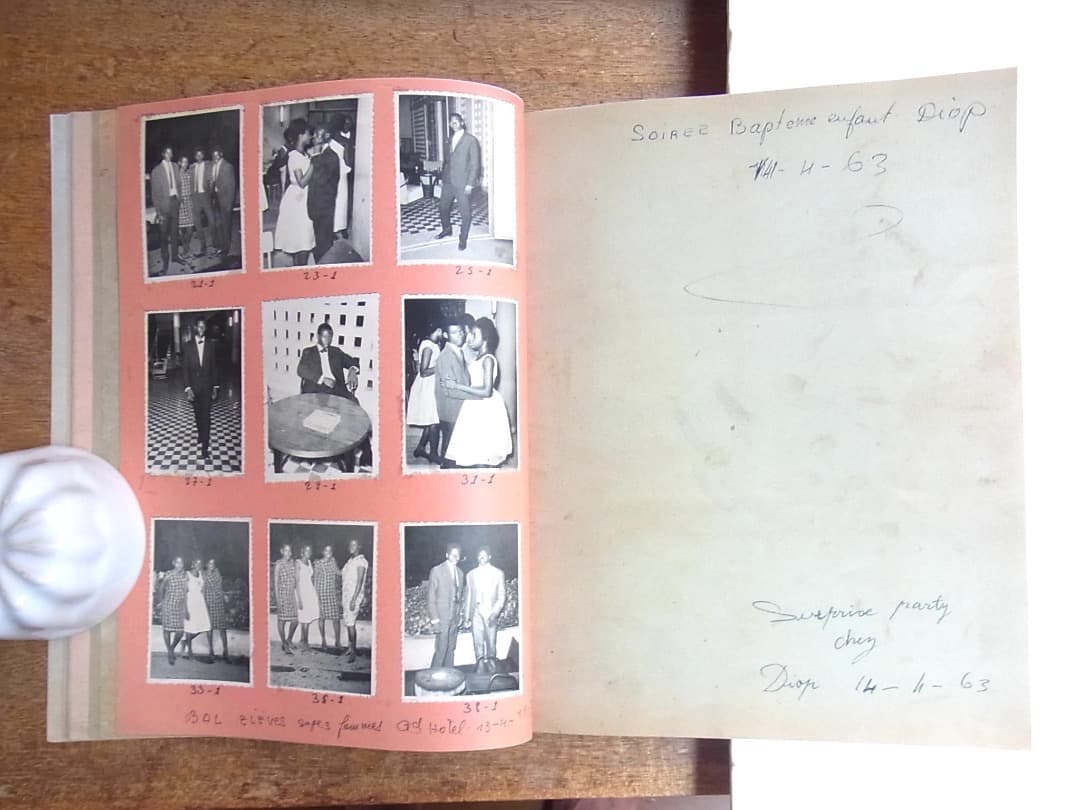 21-1 23-1 25-1
27-1 29-1 31-1
33-1 36-1 38-1
BAL ELÈVES sages femmes Gd Hotel. 13-4-
SOIREE Bapteme enfant Diop
14-4-63
Surprise party
chez
Diop 14-4-63